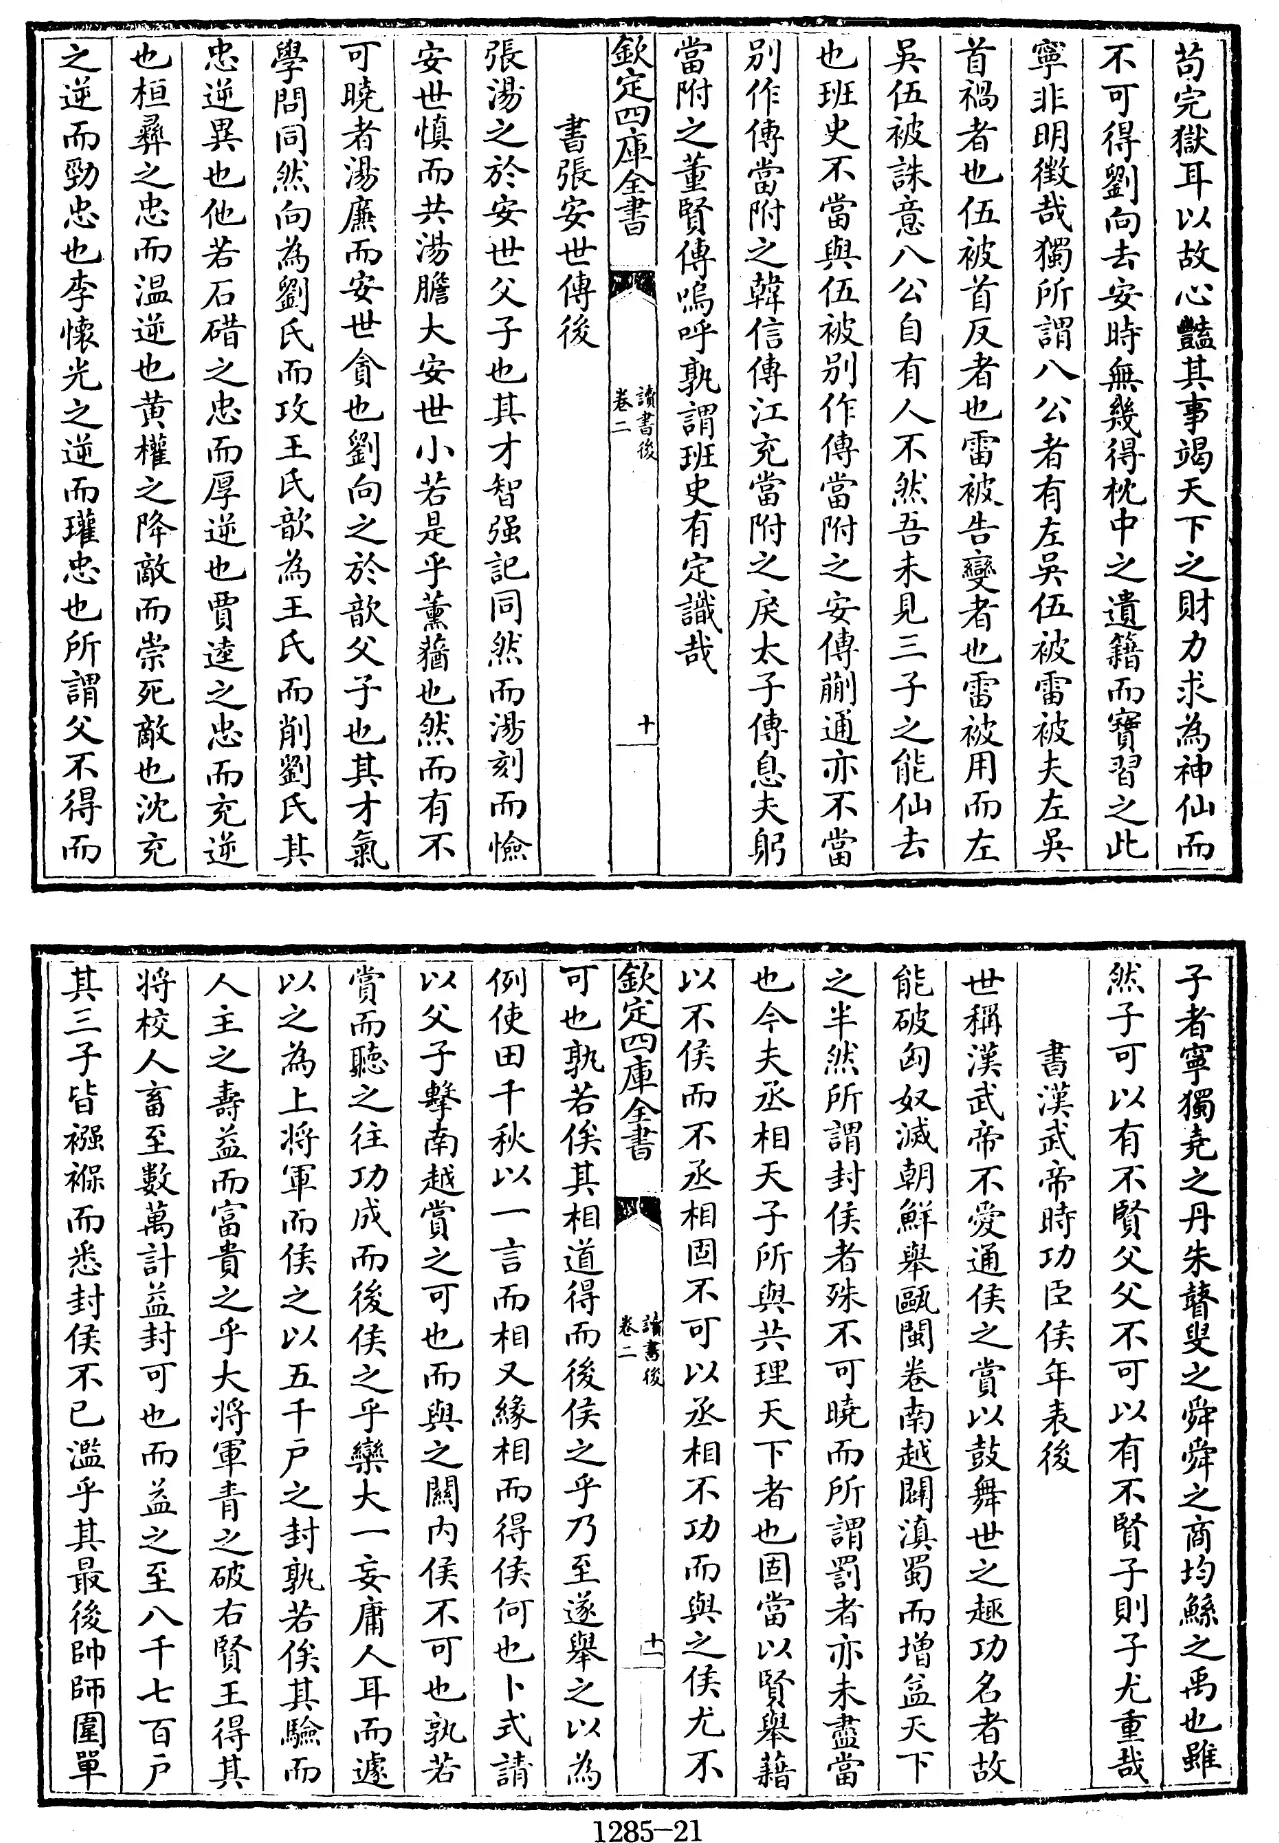 苟完獄耳以故心豔其事竭天下之財力求為神仙而
不可得劉向去安時無幾得枕中之遺籍而寶習之此
寧非明徵哉獨所謂八公者有左吳伍被雷被夫左吳
首禍者也伍被首反者也雷被告變者也雷被用而左
吳伍被誅意八公自有人不然吾未見三子之能仙去
也班史不當與伍被别作傳當附之安傳蒯通亦不當
别作傳當附之韓信傳江充當附之戾太子傳息夫躬
當附之董賢傳嗚呼孰謂班史有定識哉
欽定四庫全書
讀書後
卷二
十
書張安世傳後
張湯之於安世父子也其才智强記同然而湯刻而憸
安世慎而共湯膽大安世小若是乎薰蕕也然而有不
可曉者湯廉而安世貪也劉向之於歆父子也其才氣
學問同然向為劉氏而攻王氏歆為王氏而削劉氏其
忠逆異也他若石碏之忠而厚逆也賈逵之忠而充逆
也桓彞之忠而温逆也黄權之降敵而崇死敵也沈充
之逆而勁忠也李懷光之逆而瓘忠也所謂父不得而
子者寧獨堯之丹朱瞽叟之舜舜之商均鯀之禹也雖
然子可以有不賢父父不可以有不賢子則子尤重哉
書漢武帝時功臣侯年表後
世稱漢武帝不愛通侯之賞以鼓舞世之趣功名者故
能破匈奴滅朝鮮舉甌閩卷南越闢滇蜀而增益天下
之半然所謂封侯者殊不可曉而所謂罰者亦未盡當
也今夫丞相天子所與共理天下者也固當以賢舉藉
以不侯而不丞相固不可以丞相不功而與之侯尤不
欽定四庫全書
讀書後
卷二
十一
可也孰若俟其相道得而後侯之乎乃至遂舉之以為
例使田千秋以一言而相又緣相而得侯何也卜式請
以父子擊南越賞之可也而與之關内侯不可也孰若
賞而聽之往功成而後侯之乎欒大一妄庸人耳而遽
以之為上將軍而侯之以五千户之封孰若俟其驗而
人主之壽益而富貴之乎大將軍青之破右賢王得其
將校人畜至數萬計益封可也而益之至八千七百户
其三子皆襁褓而悉封侯不已濫乎其最後帥師圍單
1285-21